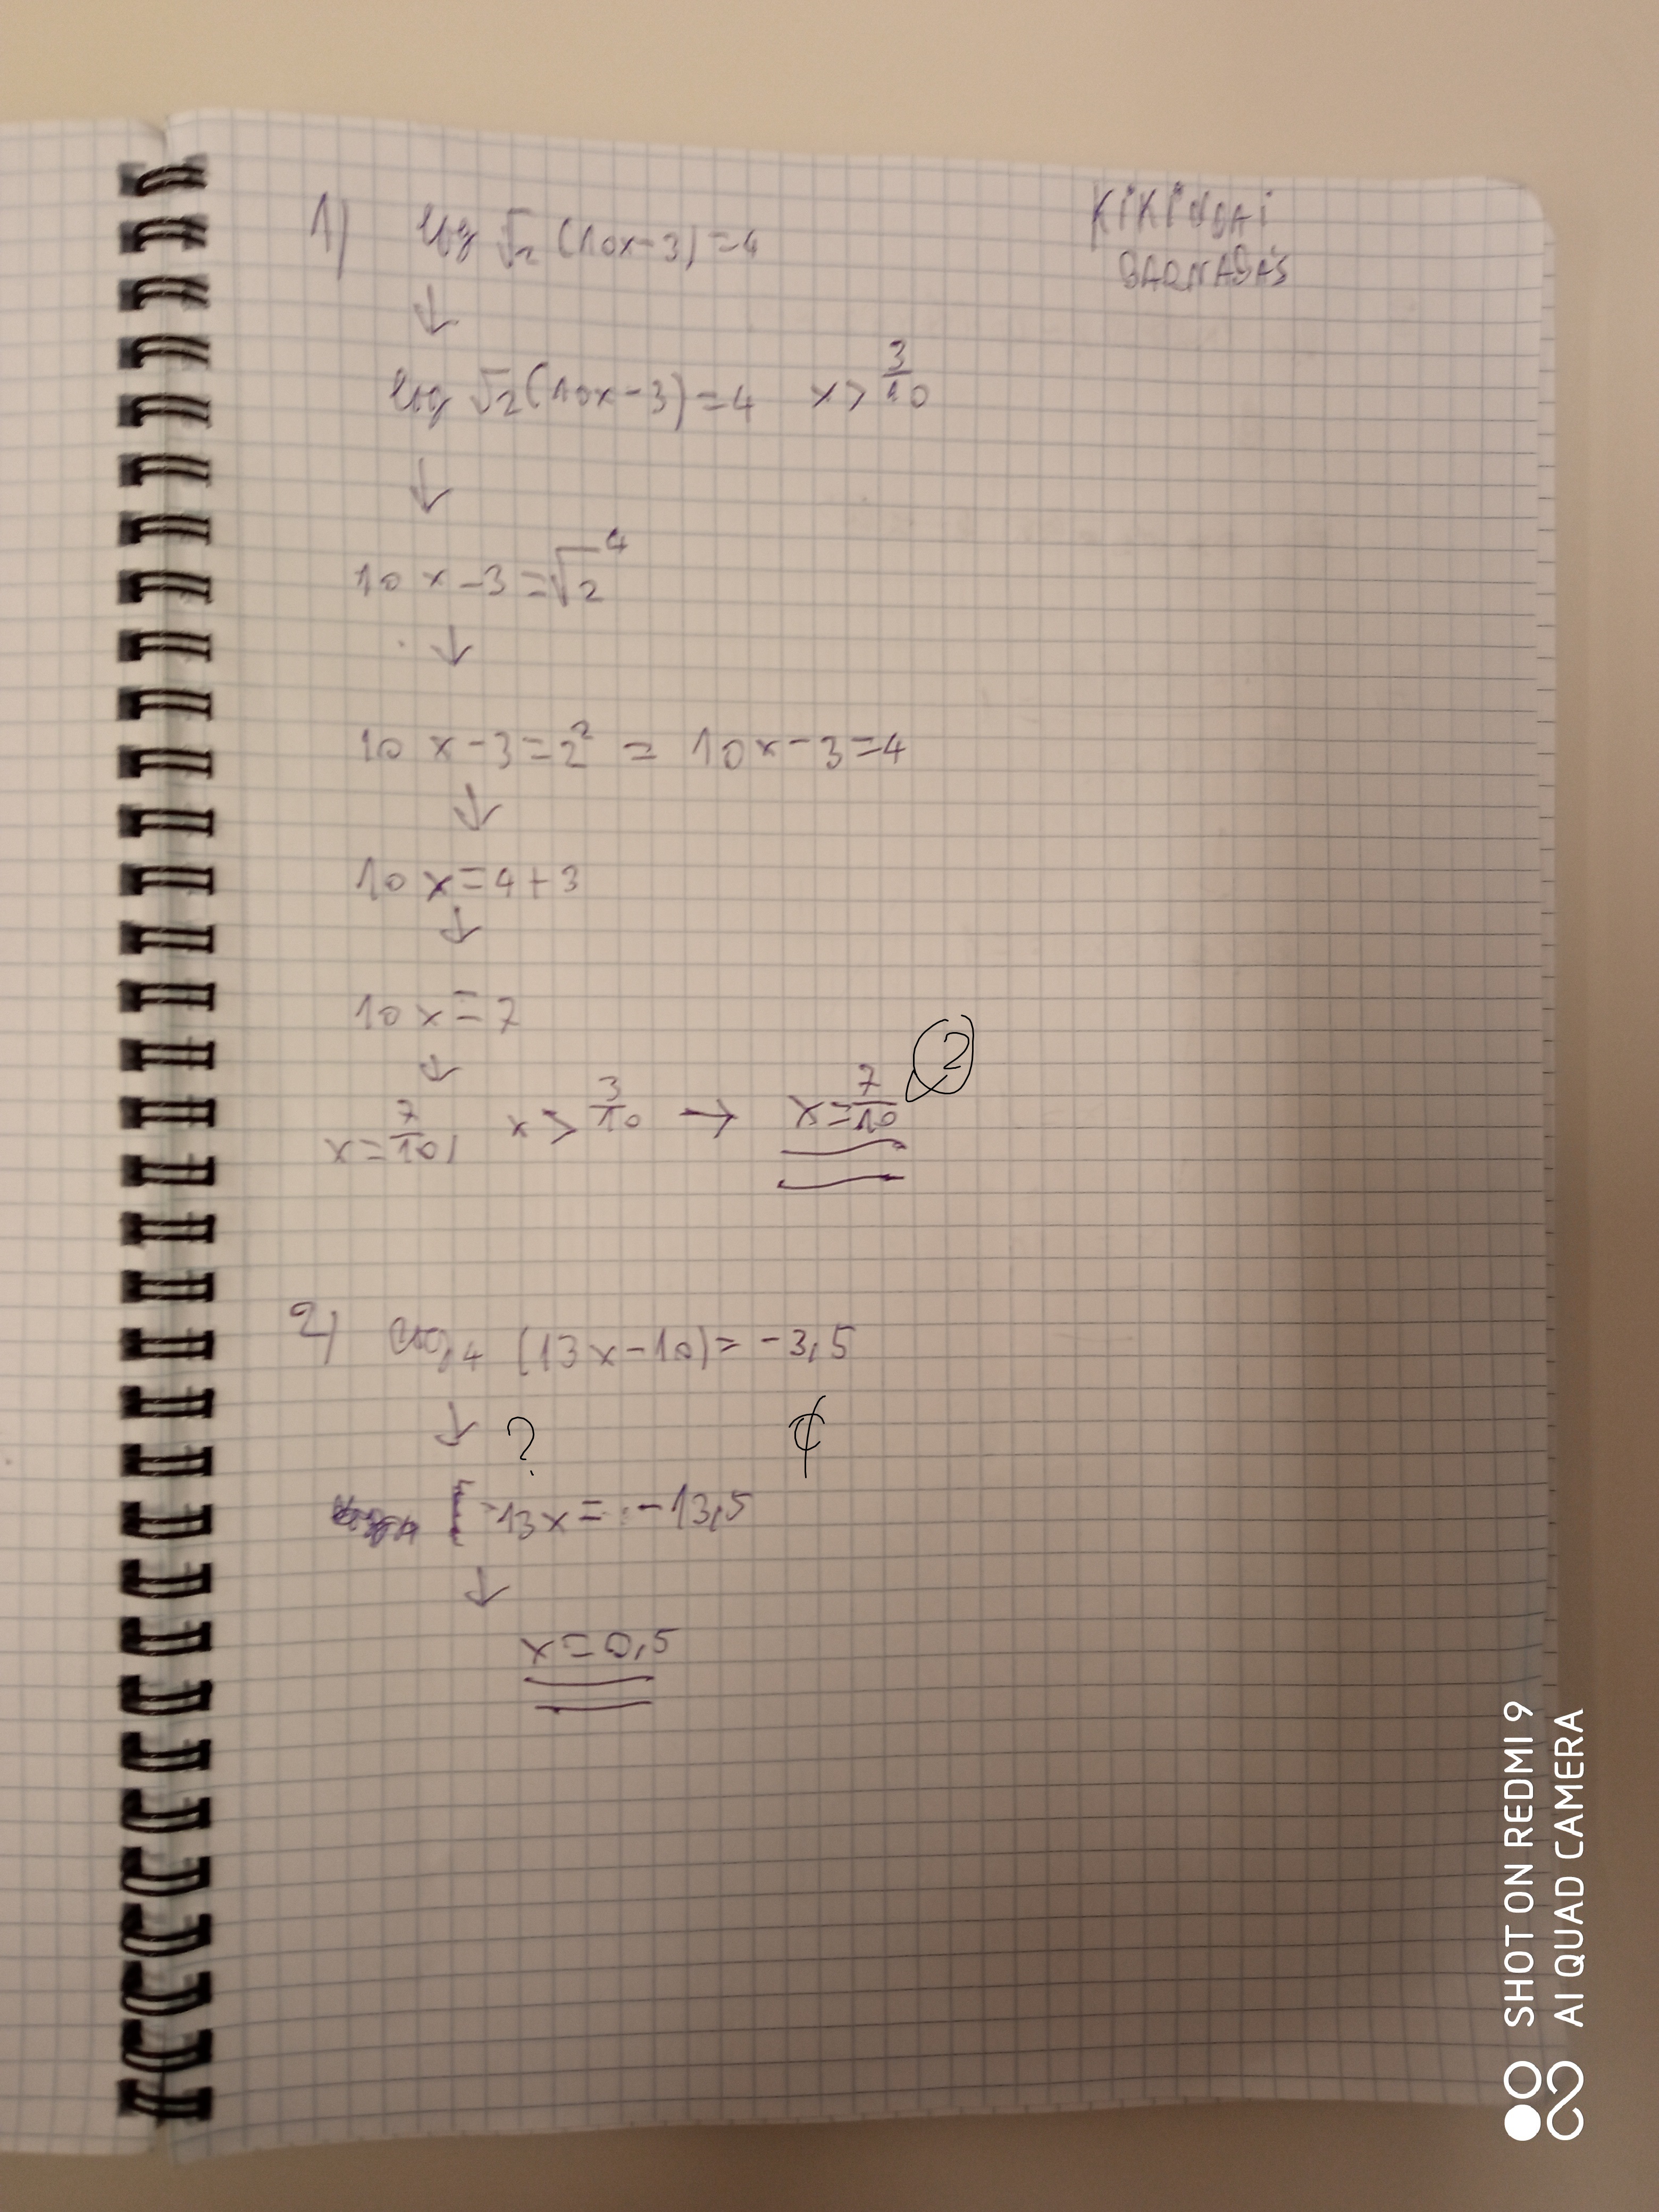 1) log √2 (10x-3)=4
KIKINDAI
BARNABÁS
↓
log √2 (10x-3)=4 x> 3/10
↓
10x-3=√2^4
↓
10x-3=2² = 10x-3=4
↓
10x=4+3
↓
10x=7
↓
x=7/10, x> 3/10 → x=7/10 2
2) log4 (13x-10)=-3,5
↓ ?
-13x= -13,5
↓
x=0,5
SHOT ON REDMI 9
AI QUAD CAMERA